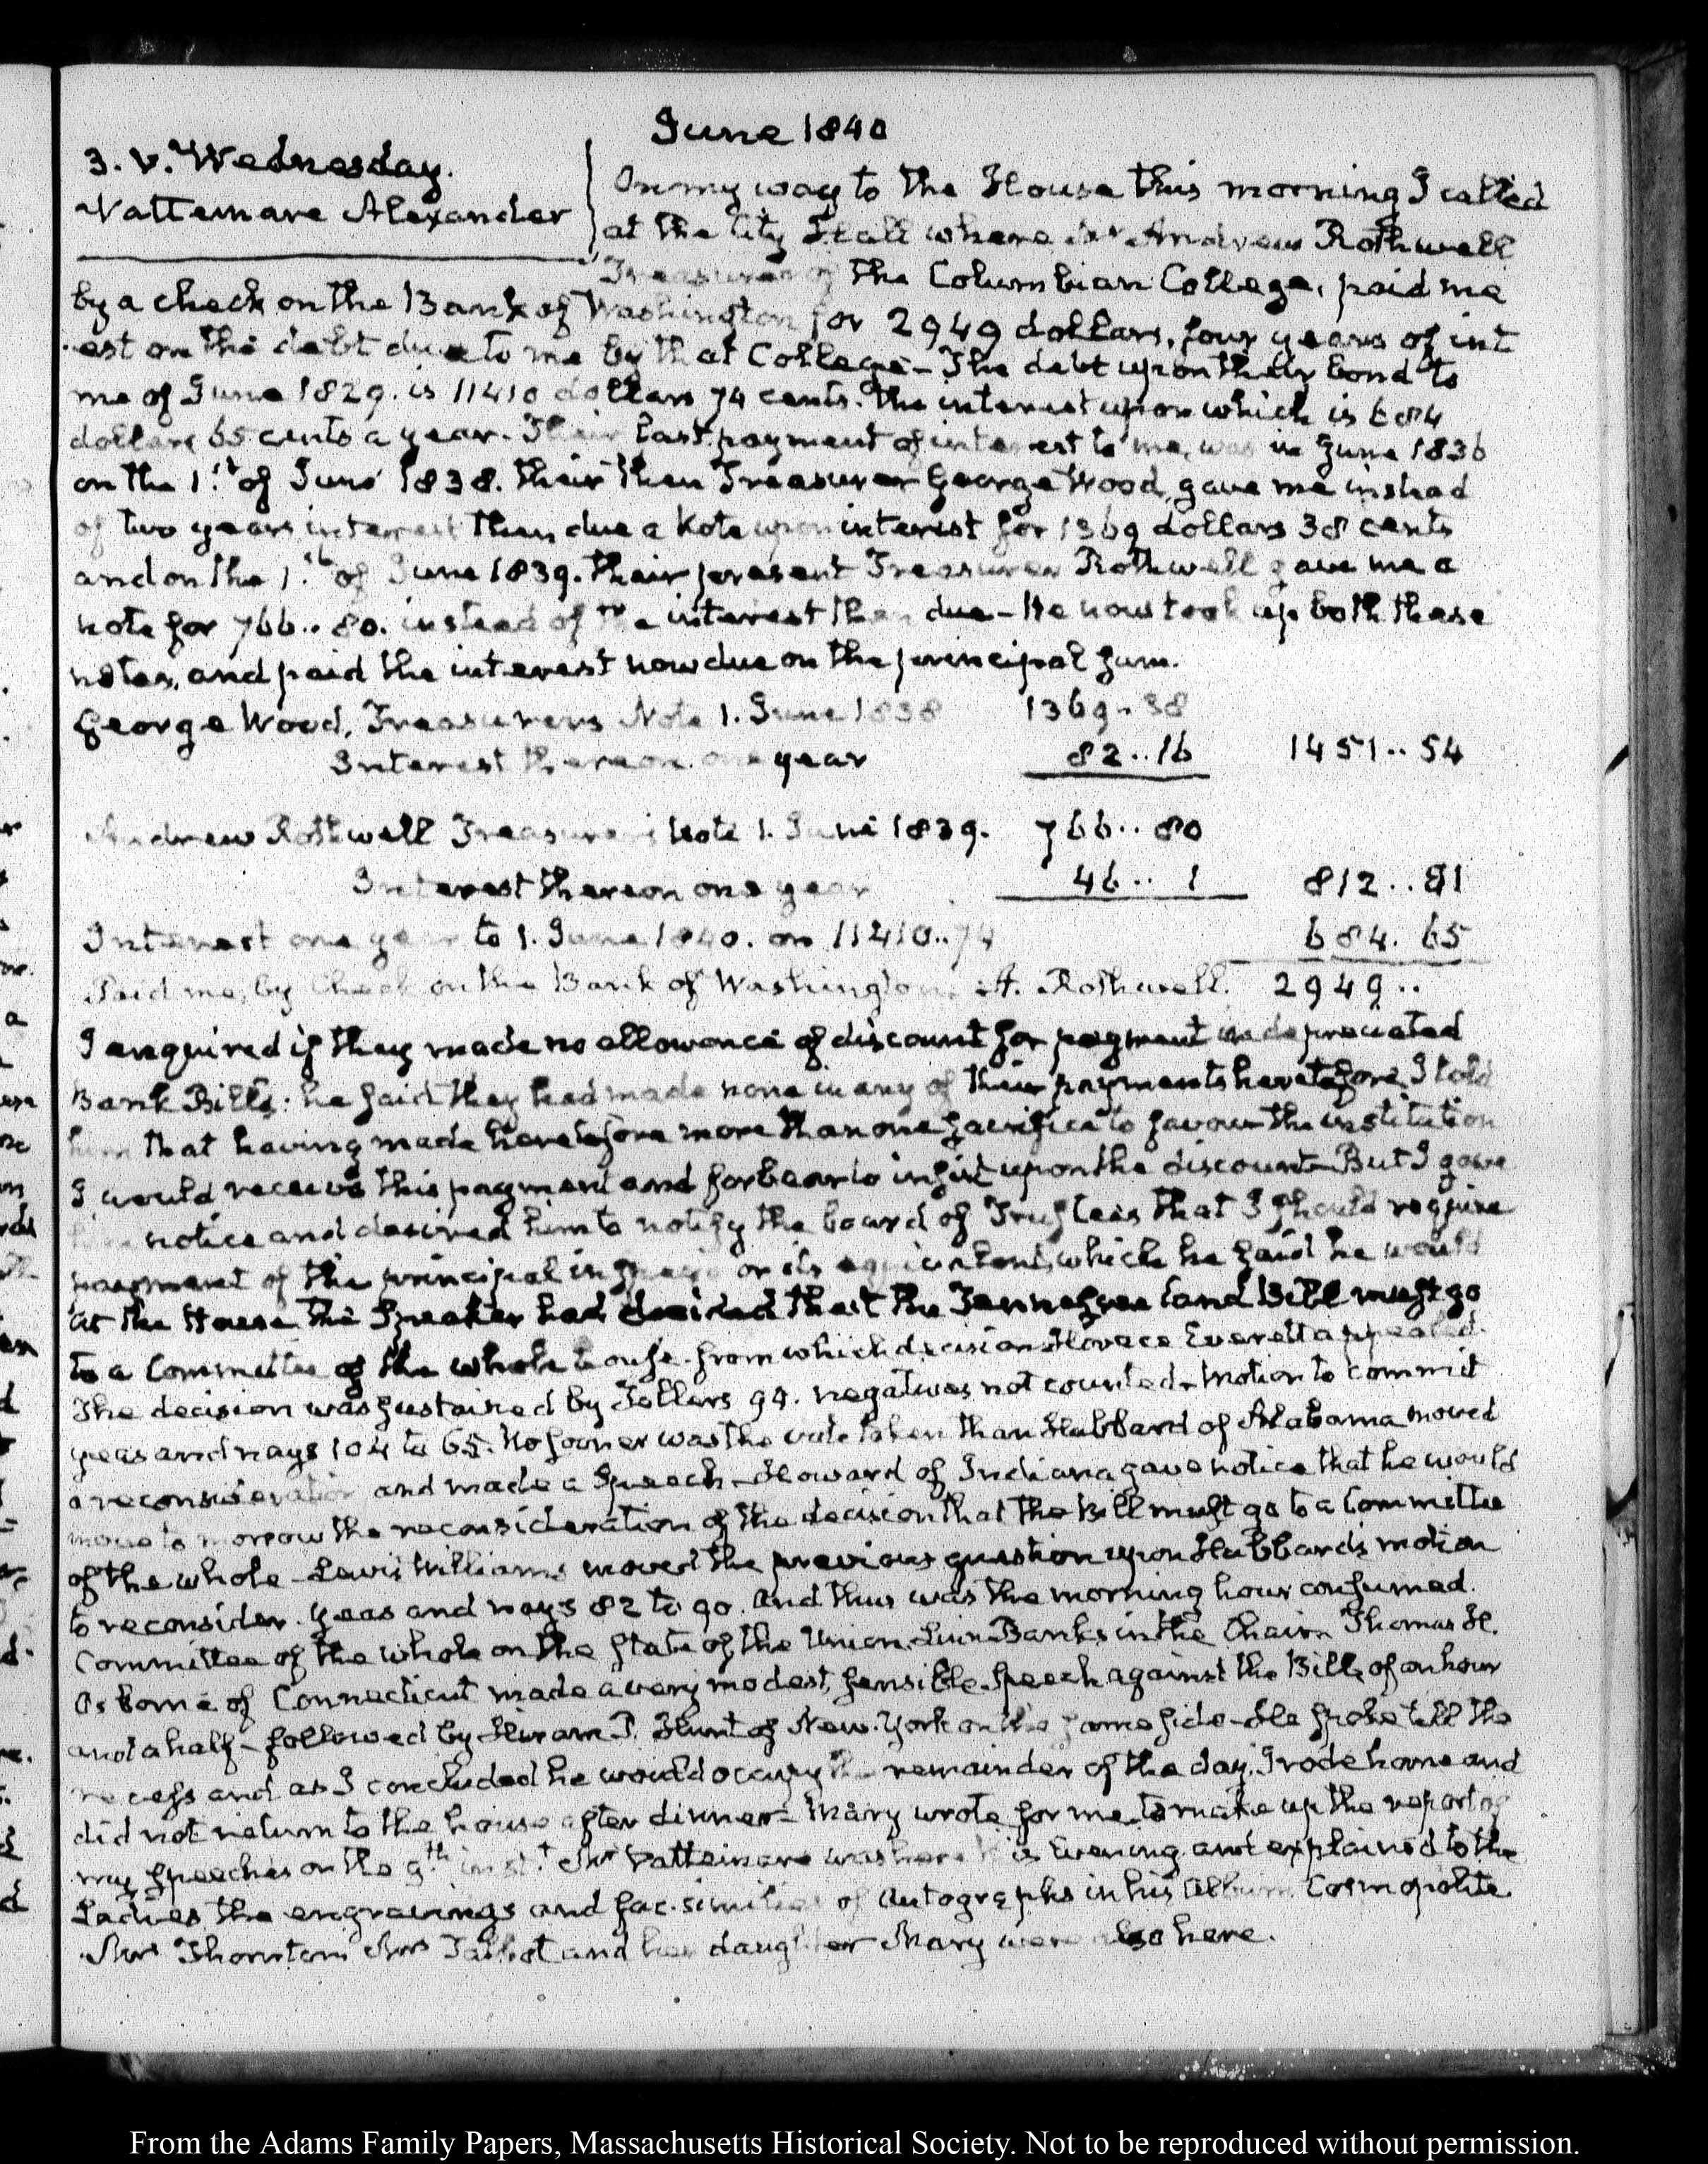 June 1840
3. V. Wednesday.
Vattemare Alexander
On my way to the House this morning I called
at the City Hall where Mr Andrew Rothwell
Treasurer of the Columbian College, paid me
by a check on the Bank of Washington for 2949 dollars, four years of int
est on the debt due to me by that College – The debt upon their bond to
me of June 1829. is 11410 dollars 74 cents. the interest upon which is 684
dollars 65 cents a year. Their last payment of interest to me, was in June 1836
on the 1.st of June 1838. their then Treasurer George Wood, gave me instead
of two years interest then due a Note upon interest for 1369 dollars 38 cents
and on the 1.st of June 1839. their present Treasurer Rothwell gave me a
note for 766..80. instead of the interest then due – He now took up both these
notes, and paid the interest now due on the principal sum.
George Wood, Treasurers Note 1. June 1838 1369..38
Interest thereon one year 82..16 1451..54
Andrew Rothwell Treasurers Note 1. June 1839. 766..80
Interest thereon one year 46.. 1 812..81
Interest one year to 1. June 1840. on 11410..74 684. 65
Paid me, by Check on the Bank of Washington. A. Rothwell. 2949..
I enquired if they made no allowance of discount for payment in depreciated
Bank Bills: he said they had made none in any of their payments heretofore, I told
him that having made heretofore more than one sacrifice to favour the institution
I would receive this payment and forbear to insist upon the discount – But I gave
him notice and desired him to notify the board of Trustees that I should require
payment of the principal in specie or its equivalent, which he said he would
At the House the Speaker had decided that the Tennessee land Bill must go
to a Committee of the whole house. from which decision Horace Everett appealed.
The decision was sustained by Tellers 94. negatives not counted – Motion to commit
yeas and nays 104 to 65. No sooner was the vote taken than Hubbard of Alabama moved
a reconsideration and made a Speech – Howard of Indiana gave notice that he would
move to morrow the reconsideration of the decision that the Bill must go to a Committee
of the whole – Lewis Williams moved the previous question upon Hubbard's motion
to reconsider. yeas and nays 82 to 90. and thus was the morning hour consumed.
Committee of the whole on the state of the Union. Linn Banks in the Chair. Thomas H.
Osborne of Connecticut made a very modest, sensible speech against the Bill, of an hour
and a half – followed by Hiram P. Hunt of New-York on the same side – He spoke till the
recess and as I concluded he would occupy the remainder of the day, I rode home and
did not return to the house after dinner – Mary wrote for me to make up the report of
my speeches on the 9th inst.t Mr Vattemare was here this Evening and explained to the
Ladies the engravings and fac-similies of autographs in his Album Cosmopolite.
Mrs Thornton Mrs Talbot and her daughter Mary were also here.
From the Adams Family Papers, Massachusetts Historical Society. Not to be reproduced without permission.